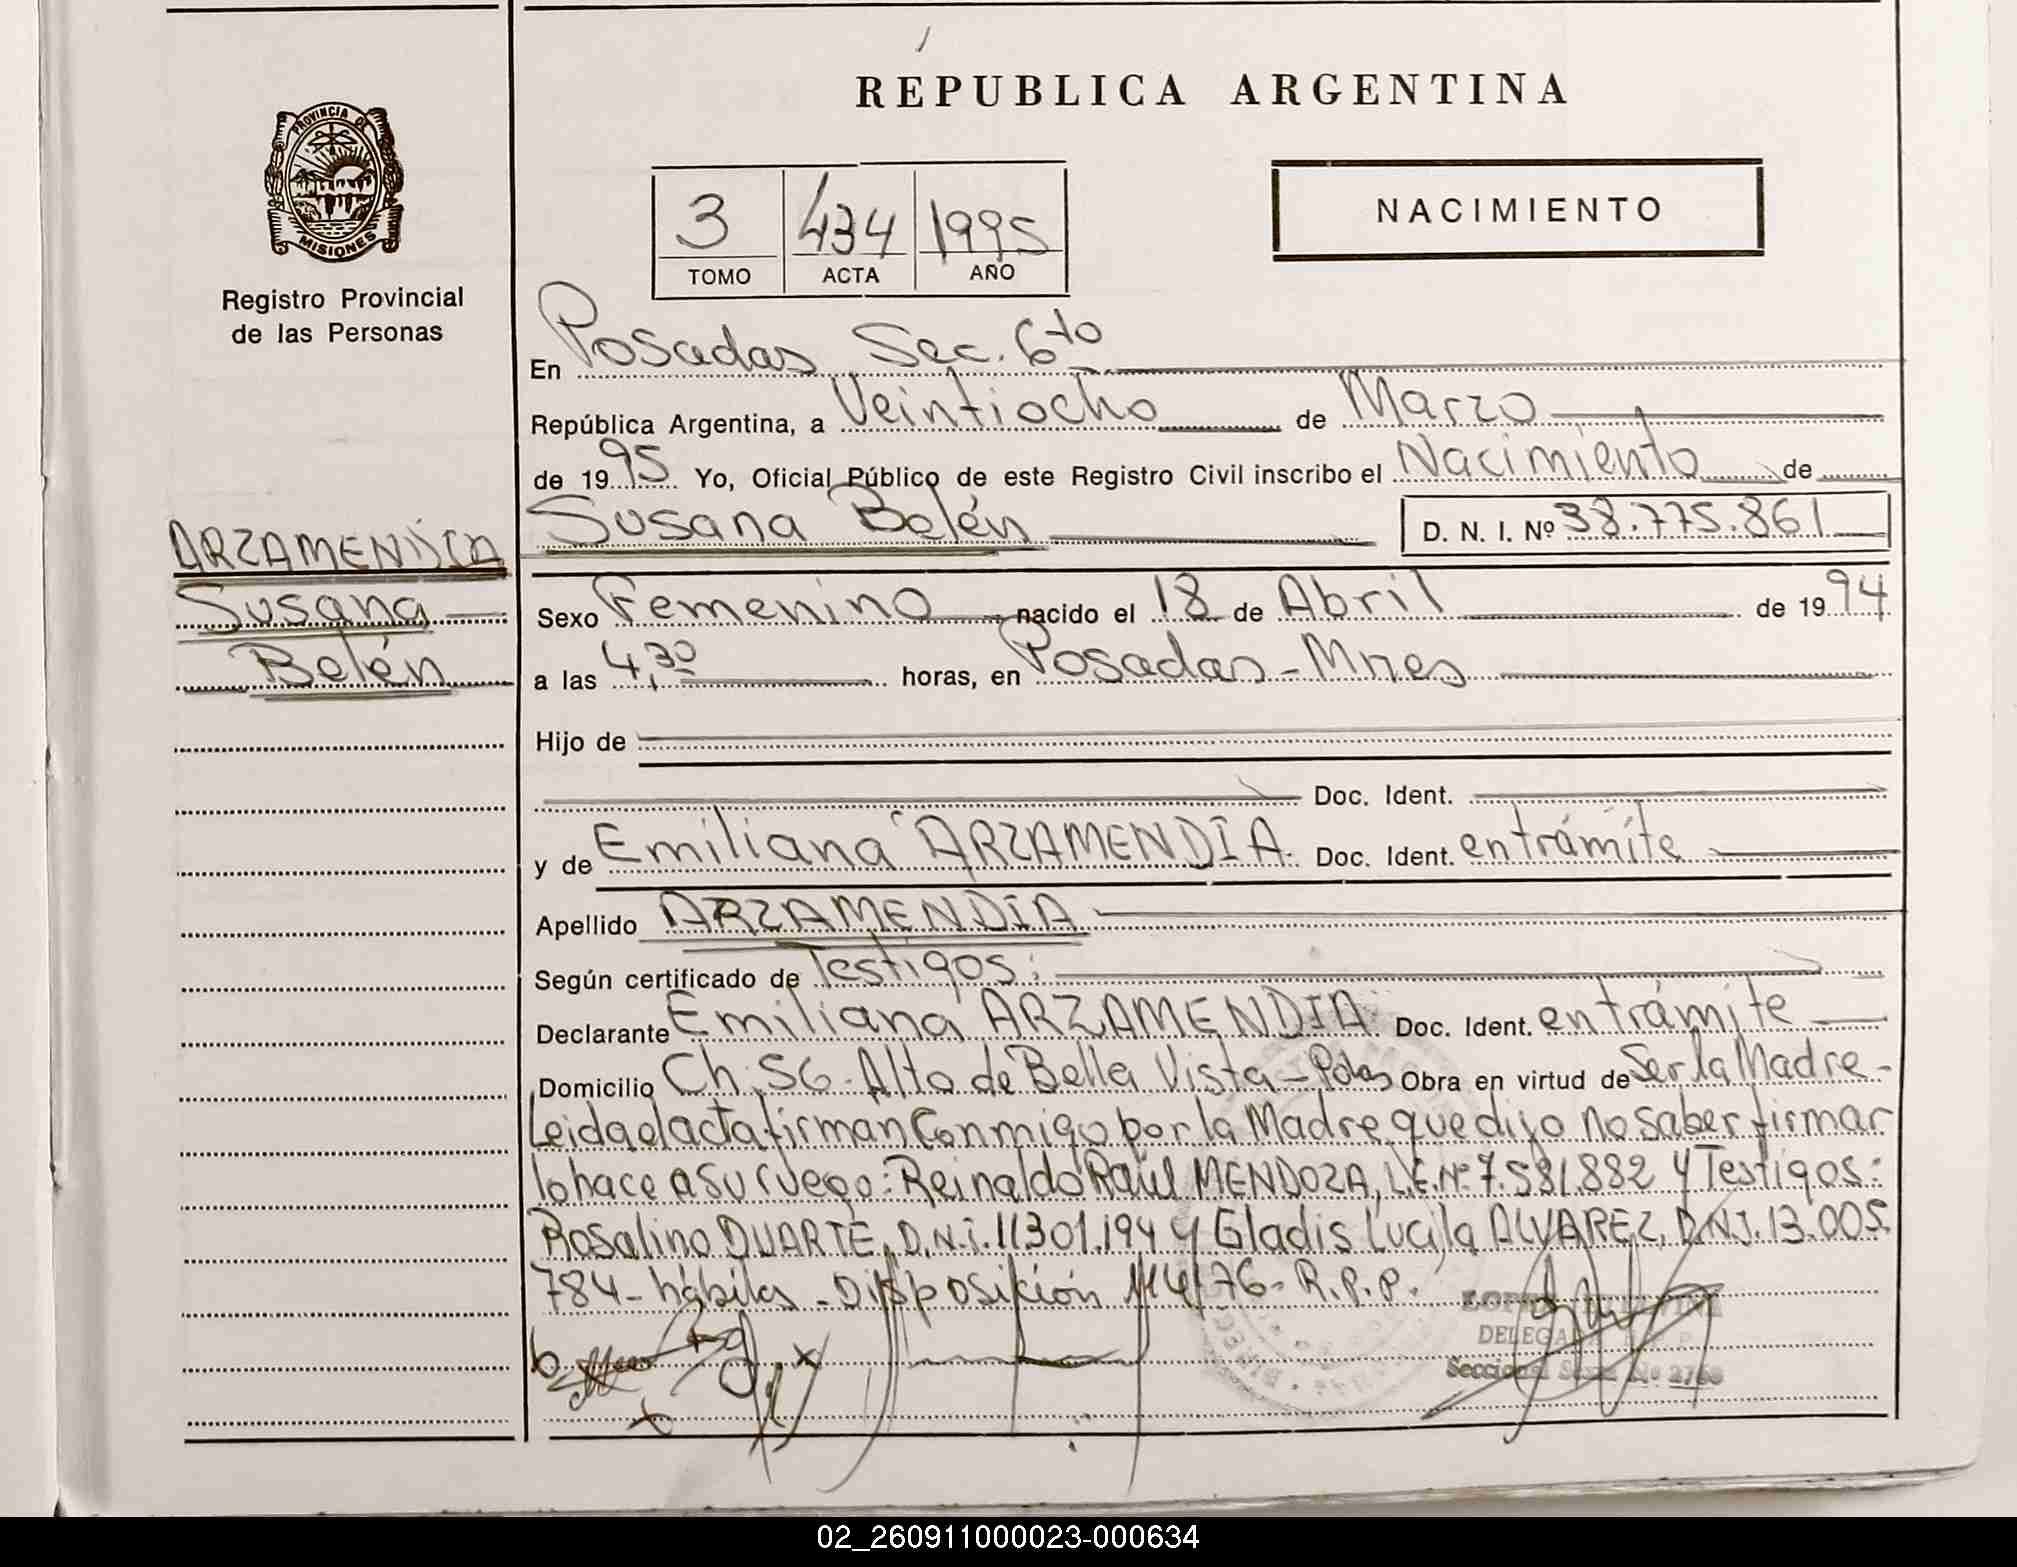 REPUBLICA ARGENTINA
PROVINCIA DE
MISIONES
Registro Provincial
de las Personas
3 434 1995
TOMO ACTA AÑO
NACIMIENTO
En Posadas Sec. 6to
República Argentina, a Veintiocho de Marzo
de 1995 Yo, Oficial Público de este Registro Civil inscribo el Nacimiento de
Susana Belén D. N. I. Nº 38.775.861
ARZAMENDIA
Susana
Belén
Sexo Femenino nacido el 18 de Abril de 1994
a las 4,30 horas, en Posadas - Mnes
Hijo de
Doc. Ident.
y de Emiliana ARZAMENDIA. Doc. Ident. en trámite
Apellido ARZAMENDIA
Según certificado de Testigos:
Declarante Emiliana ARZAMENDIA Doc. Ident. en trámite
Domicilio Ch. 56. Alto de Bella Vista - Pdas Obra en virtud de Ser la Madre -
Leida el acta firman Conmigo por la Madre que dijo no saber firmar
lo hace a su ruego: Reinaldo Raúl MENDOZA, L.E. Nº 7.581.882 y Testigos:
Rosalino DUARTE, D.N.I. 11301.194 y Gladis Lucila ALVAREZ, D.N.I. 13.005.
784 - hábiles - Disposición 114/76 - R.P.P.
DELEGADA
Seccional Sexta Nº 2768
02_260911000023-000634